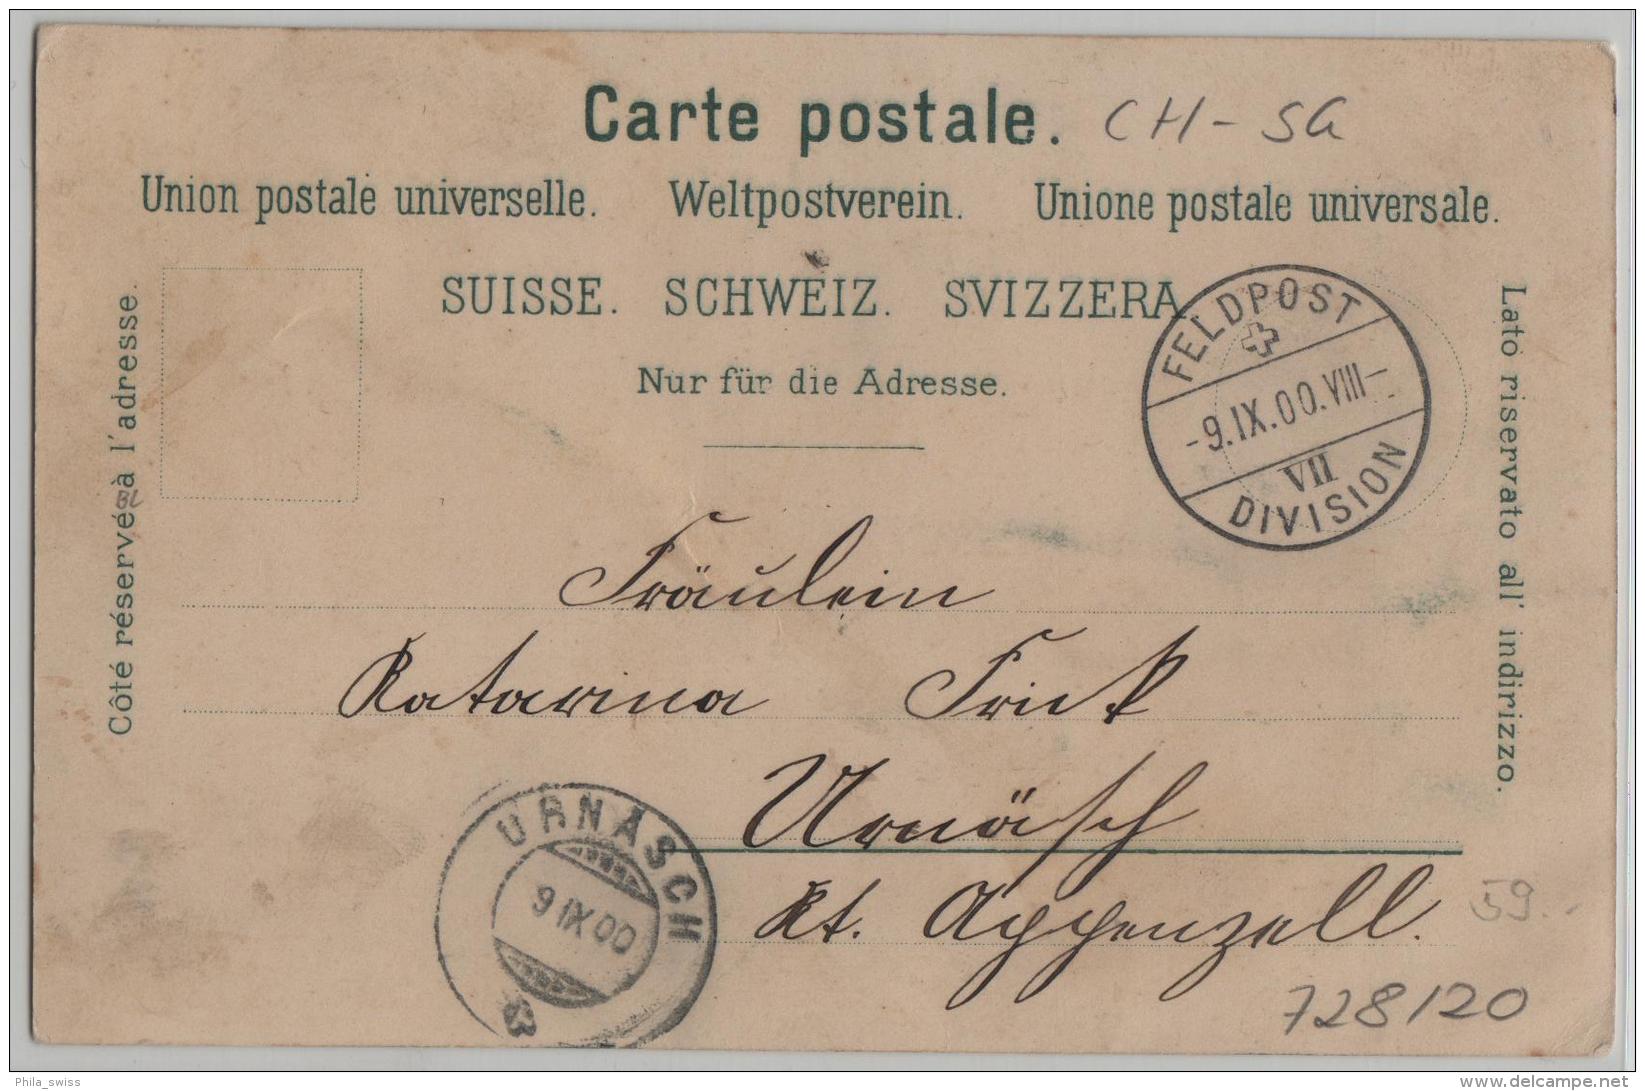 Carte postale. CH-SG
Union postale universelle. Weltpostverein. Unione postale universale.
SUISSE. SCHWEIZ. SVIZZERA.
Nur für die Adresse.
Côté réservé à l'adresse.
BL
Lato riservato all' indirizzo.
FELDPOST
-9.IX.00.VIII-
VII
DIVISION
Fräulein
Katarina Frick
Urnäsch
Kt. Appenzell.
URNÄSCH
9 IX 00
59.-
728/20
Phila_swiss
delcampe.net